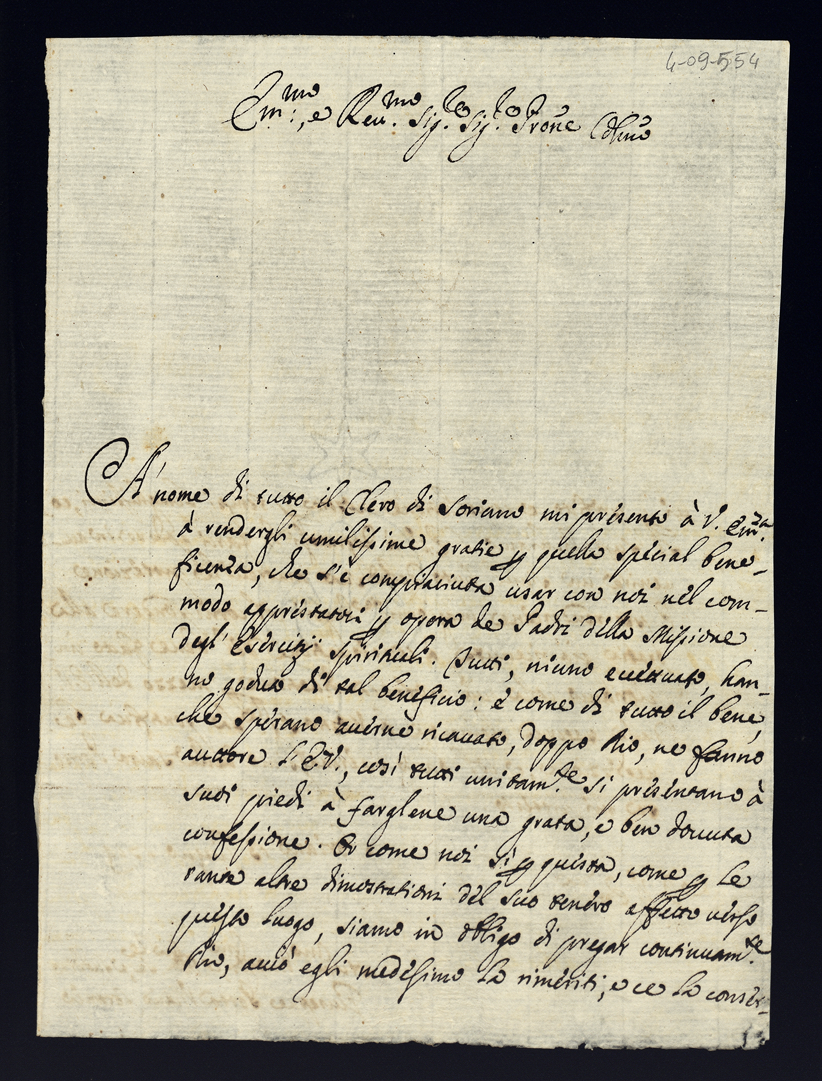 4-09-554
Em:mo, e Reu.mo Sig.re Sig.re Pron̄e Col̄mo
A' nome di tutto il Clero di Soriano mi presento à V. Em.za
à rendergli umilissime gratie p quella special bene-
ficenza, che s'è compiaciuta usar con noi nel com-
modo apprestatoci p opera de Padri della Missione
degl' Esercizij spirituali. Tutti, niuno eccettuato, han-
no goduto di tal beneficio: e come di tutto il bene,
che sperano averne ricavato, doppo Dio, ne fanno
auttore l'E.V., così tutti unitam.te si presentano à
suoi piedi à farglene una grata, e ben dovuta
confessione. Or come noi sì p questa, come p le
tante altre dimostrationi del suo tenero affetto verso
questo luogo, siamo in obligo di pregar continuam.te
Dio, acciò egli medesimo la rimeriti, e ce la conser-